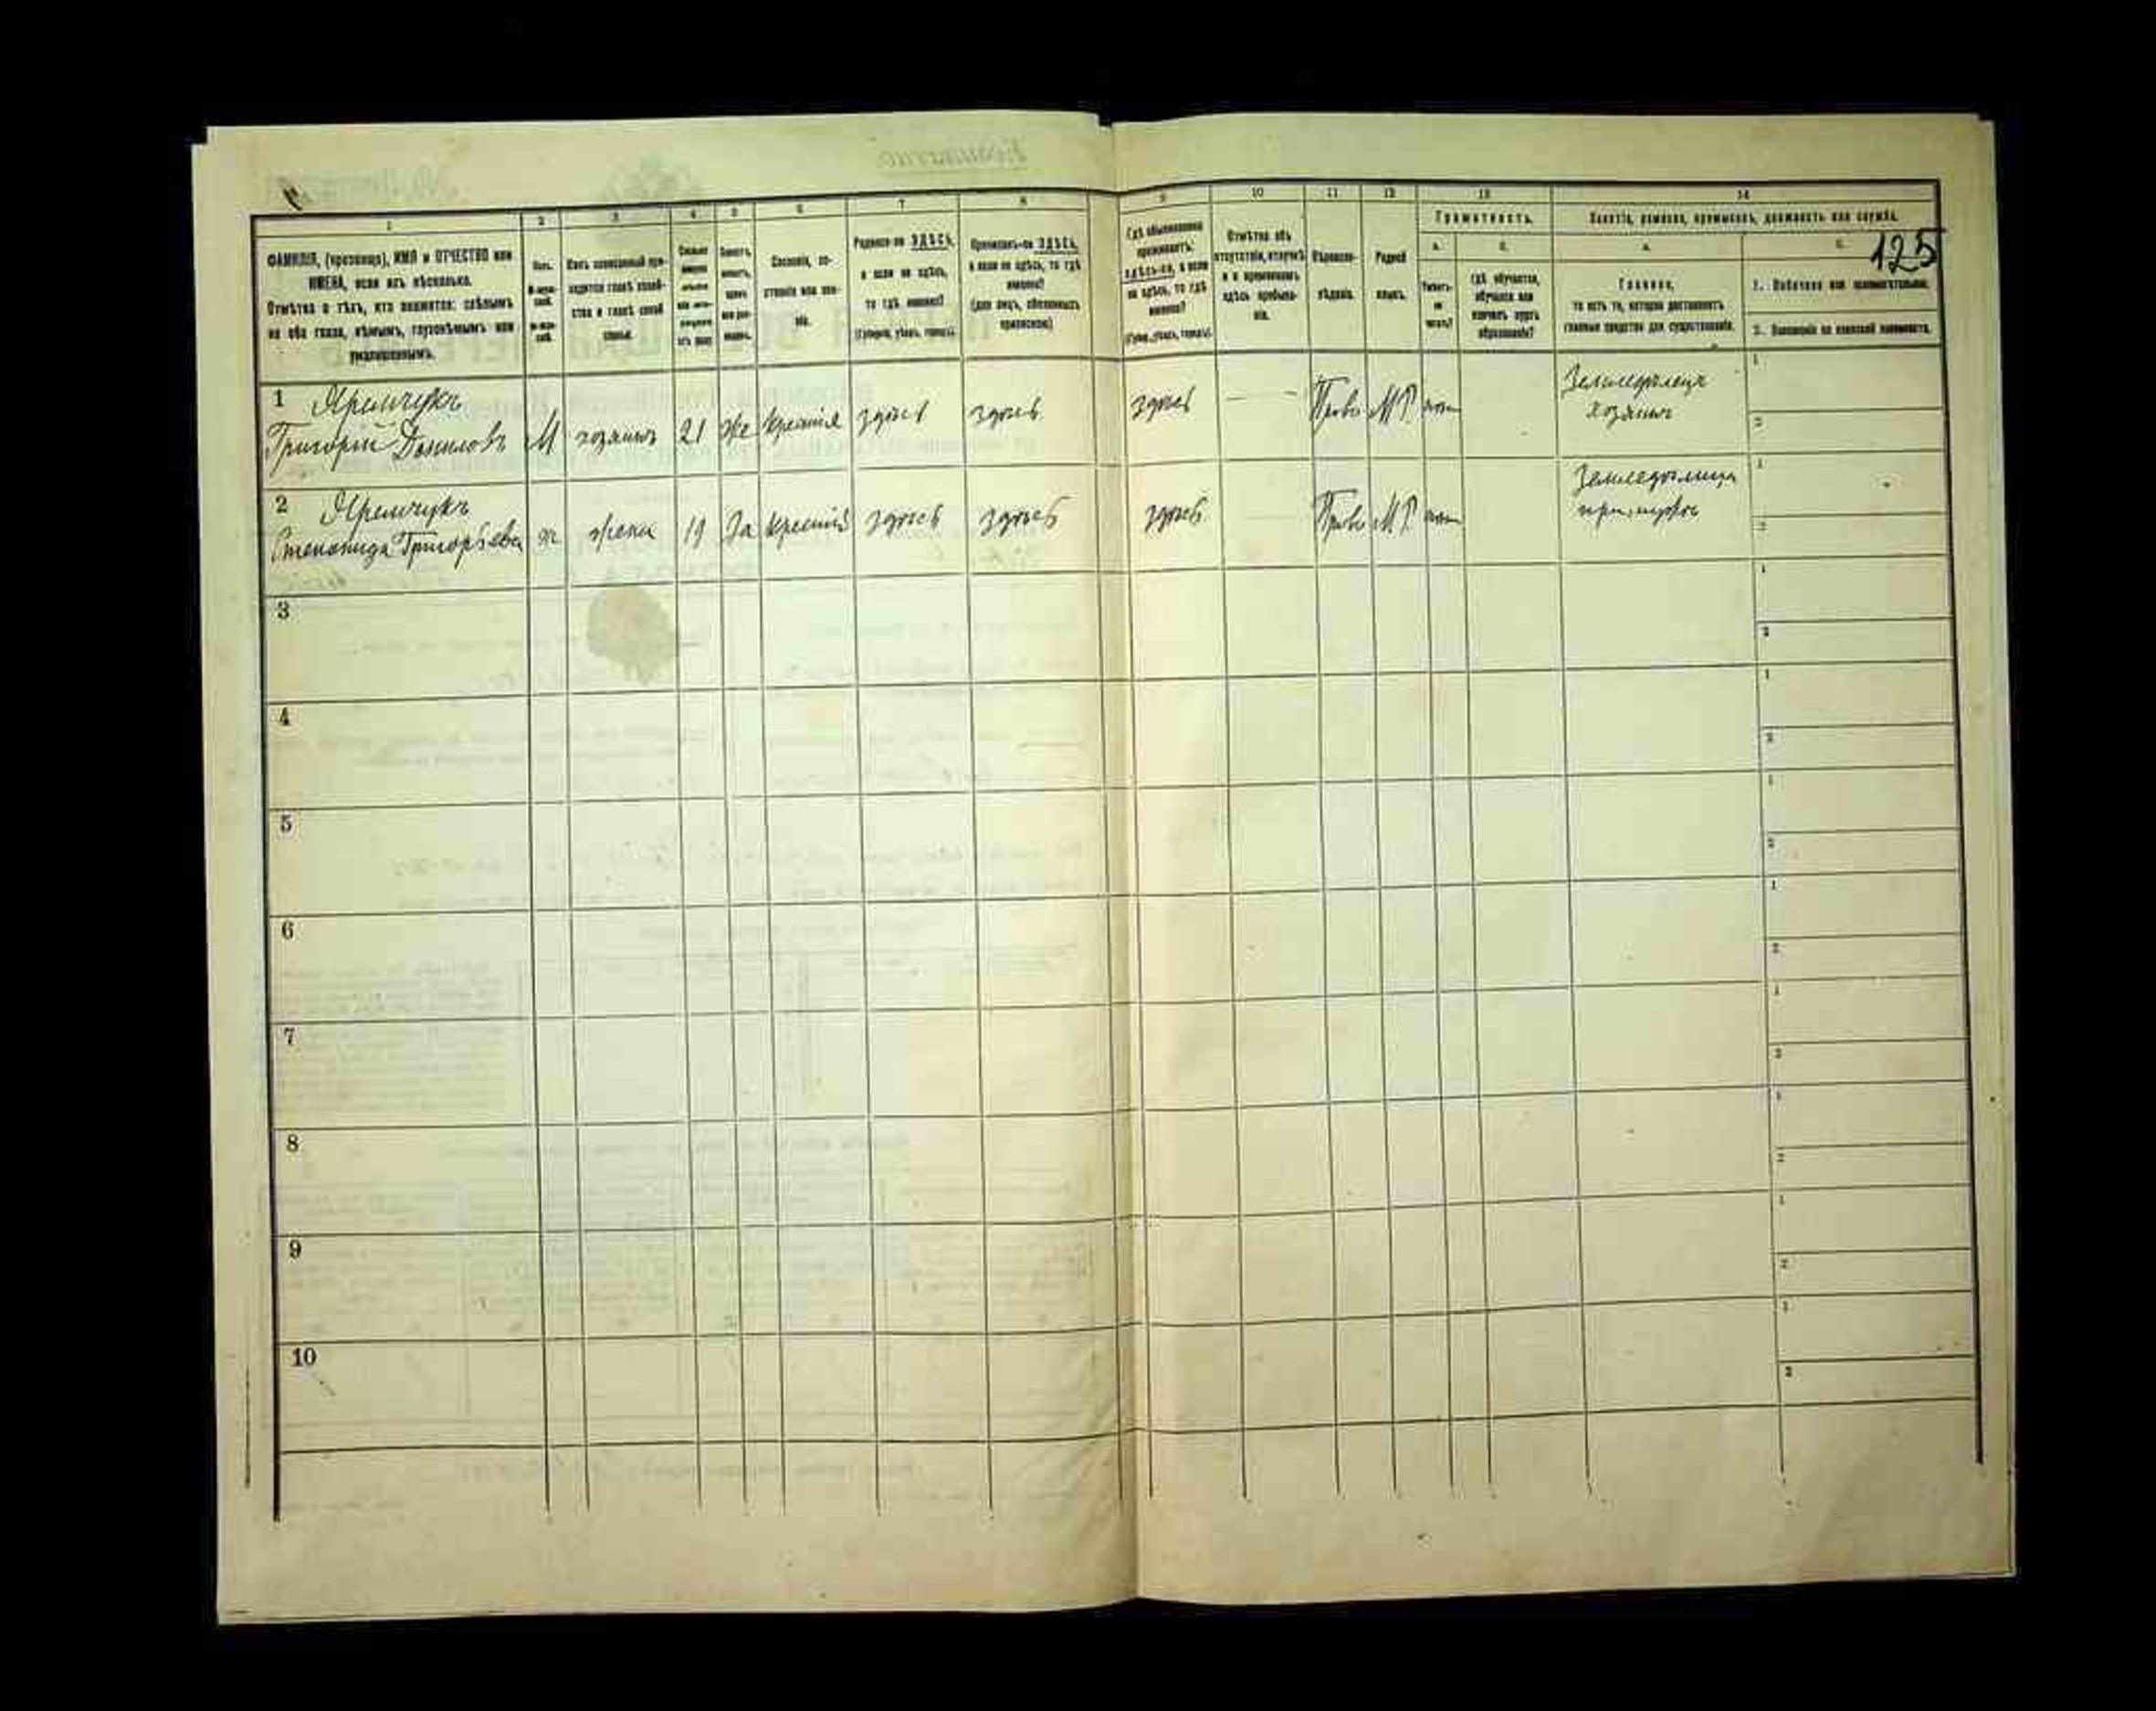 1
2
3
4
5
6
7
8
9
10
11
12
13
14
Грамотность.
Занятіе, ремесло, промыселъ, должность или служба.
125
ФАМИЛІЯ, (прозвище), ИМЯ и ОТЧЕСТВО или
ИМЕНА, если ихъ нѣсколько.
Отмѣтка о тѣхъ, кто окажется: слѣпымъ
на оба глаза, нѣмымъ, глухонѣмымъ или
умалишеннымъ.
Полъ.
Какъ записанный при-
ходится главѣ хозяй-
ства и главѣ своей
семьи.
Сословіе, со-
стояніе или зва-
ніе.
Родился-ли ЗДѢСЬ,
а если не здѣсь,
то гдѣ именно?
(Губернія, уѣздъ, городъ).
Приписанъ-ли ЗДѢСЬ,
а если не здѣсь, то гдѣ
именно?
(для лицъ, обязанныхъ
припискою)
Гдѣ обыкновенно
проживаетъ:
здѣсь-ли, а если
не здѣсь, то гдѣ
именно?
(Губер., уѣздъ, городъ).
Отмѣтка объ
отсутствіи, отлучкѣ
и о временномъ
здѣсь пребыва-
ніи.
Вѣроиспо-
вѣданіе.
Родной
языкъ.
а.
Умѣетъ-
ли
читать?
б.
Гдѣ обучается,
обучался или
кончилъ курсъ
образованія?
а.
Главное,
то есть то, которое доставляетъ
главныя средства для существованія.
б.
1. Побочное или вспомогательное.
2. Положеніе по воинской повинности.
1 Яремчукъ
Григорій Даниловъ
М
хозяинъ
21
Же
Крестья
здѣсь
здѣсь
здѣсь
—
Право
МР
Земледѣлецъ
хозяинъ
1
2
2 Яремчукъ
Степанида Григорьева
ж
жена
19
За
здѣсь
здѣсь
здѣсь
Право
МР
Земледѣлица
1
2
3
1
2
4
1
2
5
1
2
6
1
2
7
1
2
8
1
2
9
1
2
10
1
2